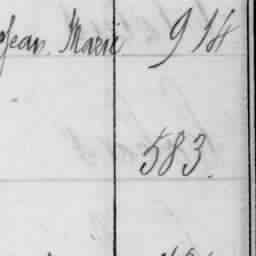 Jean Marie 914
583.